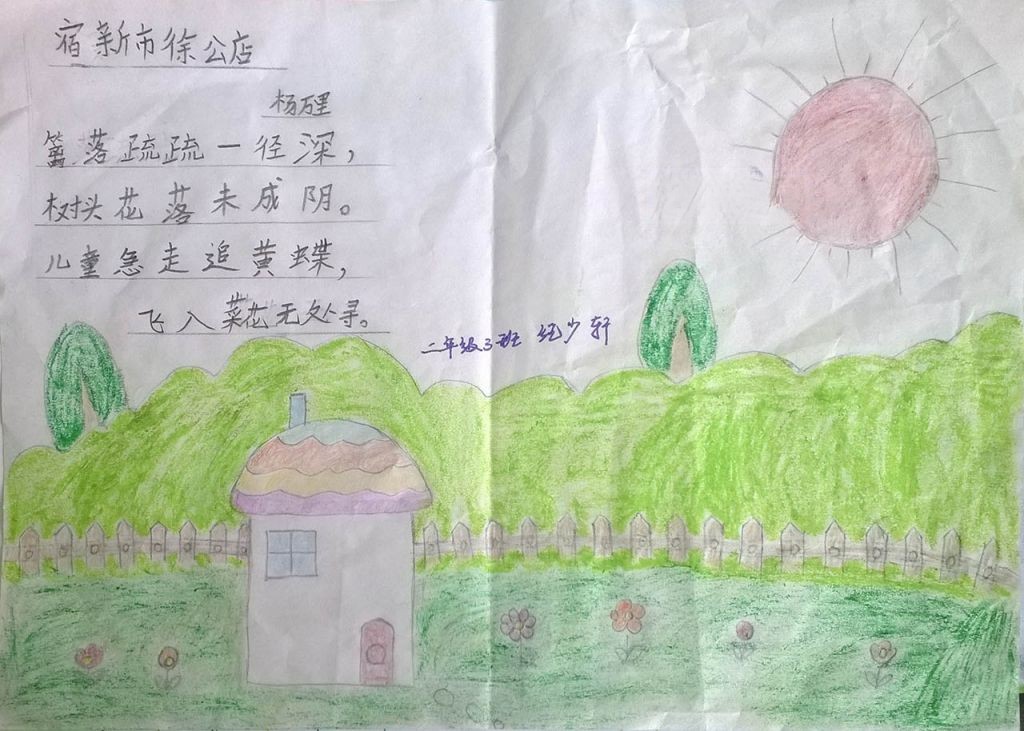 宿新市徐公店
杨万里
篱落疏疏一径深，
树头花落未成阴。
儿童急走追黄蝶，
飞入菜花无处寻。
二年级3班 纪少轩